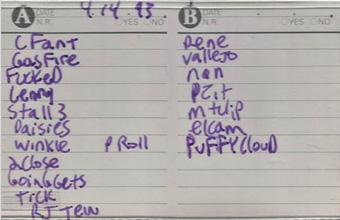 4.14.93
A DATE N.R. YES NO
CFant
GasFire
Fucked
Lenny
Stall 3
Daisies
Winkle P Roll
2close
GoingGets
Tick
RJ Tew
B DATE N.R. YES NO
Rene
Vallejo
nan
Pzit
mtulip
elcam
PUFFYCLOUD